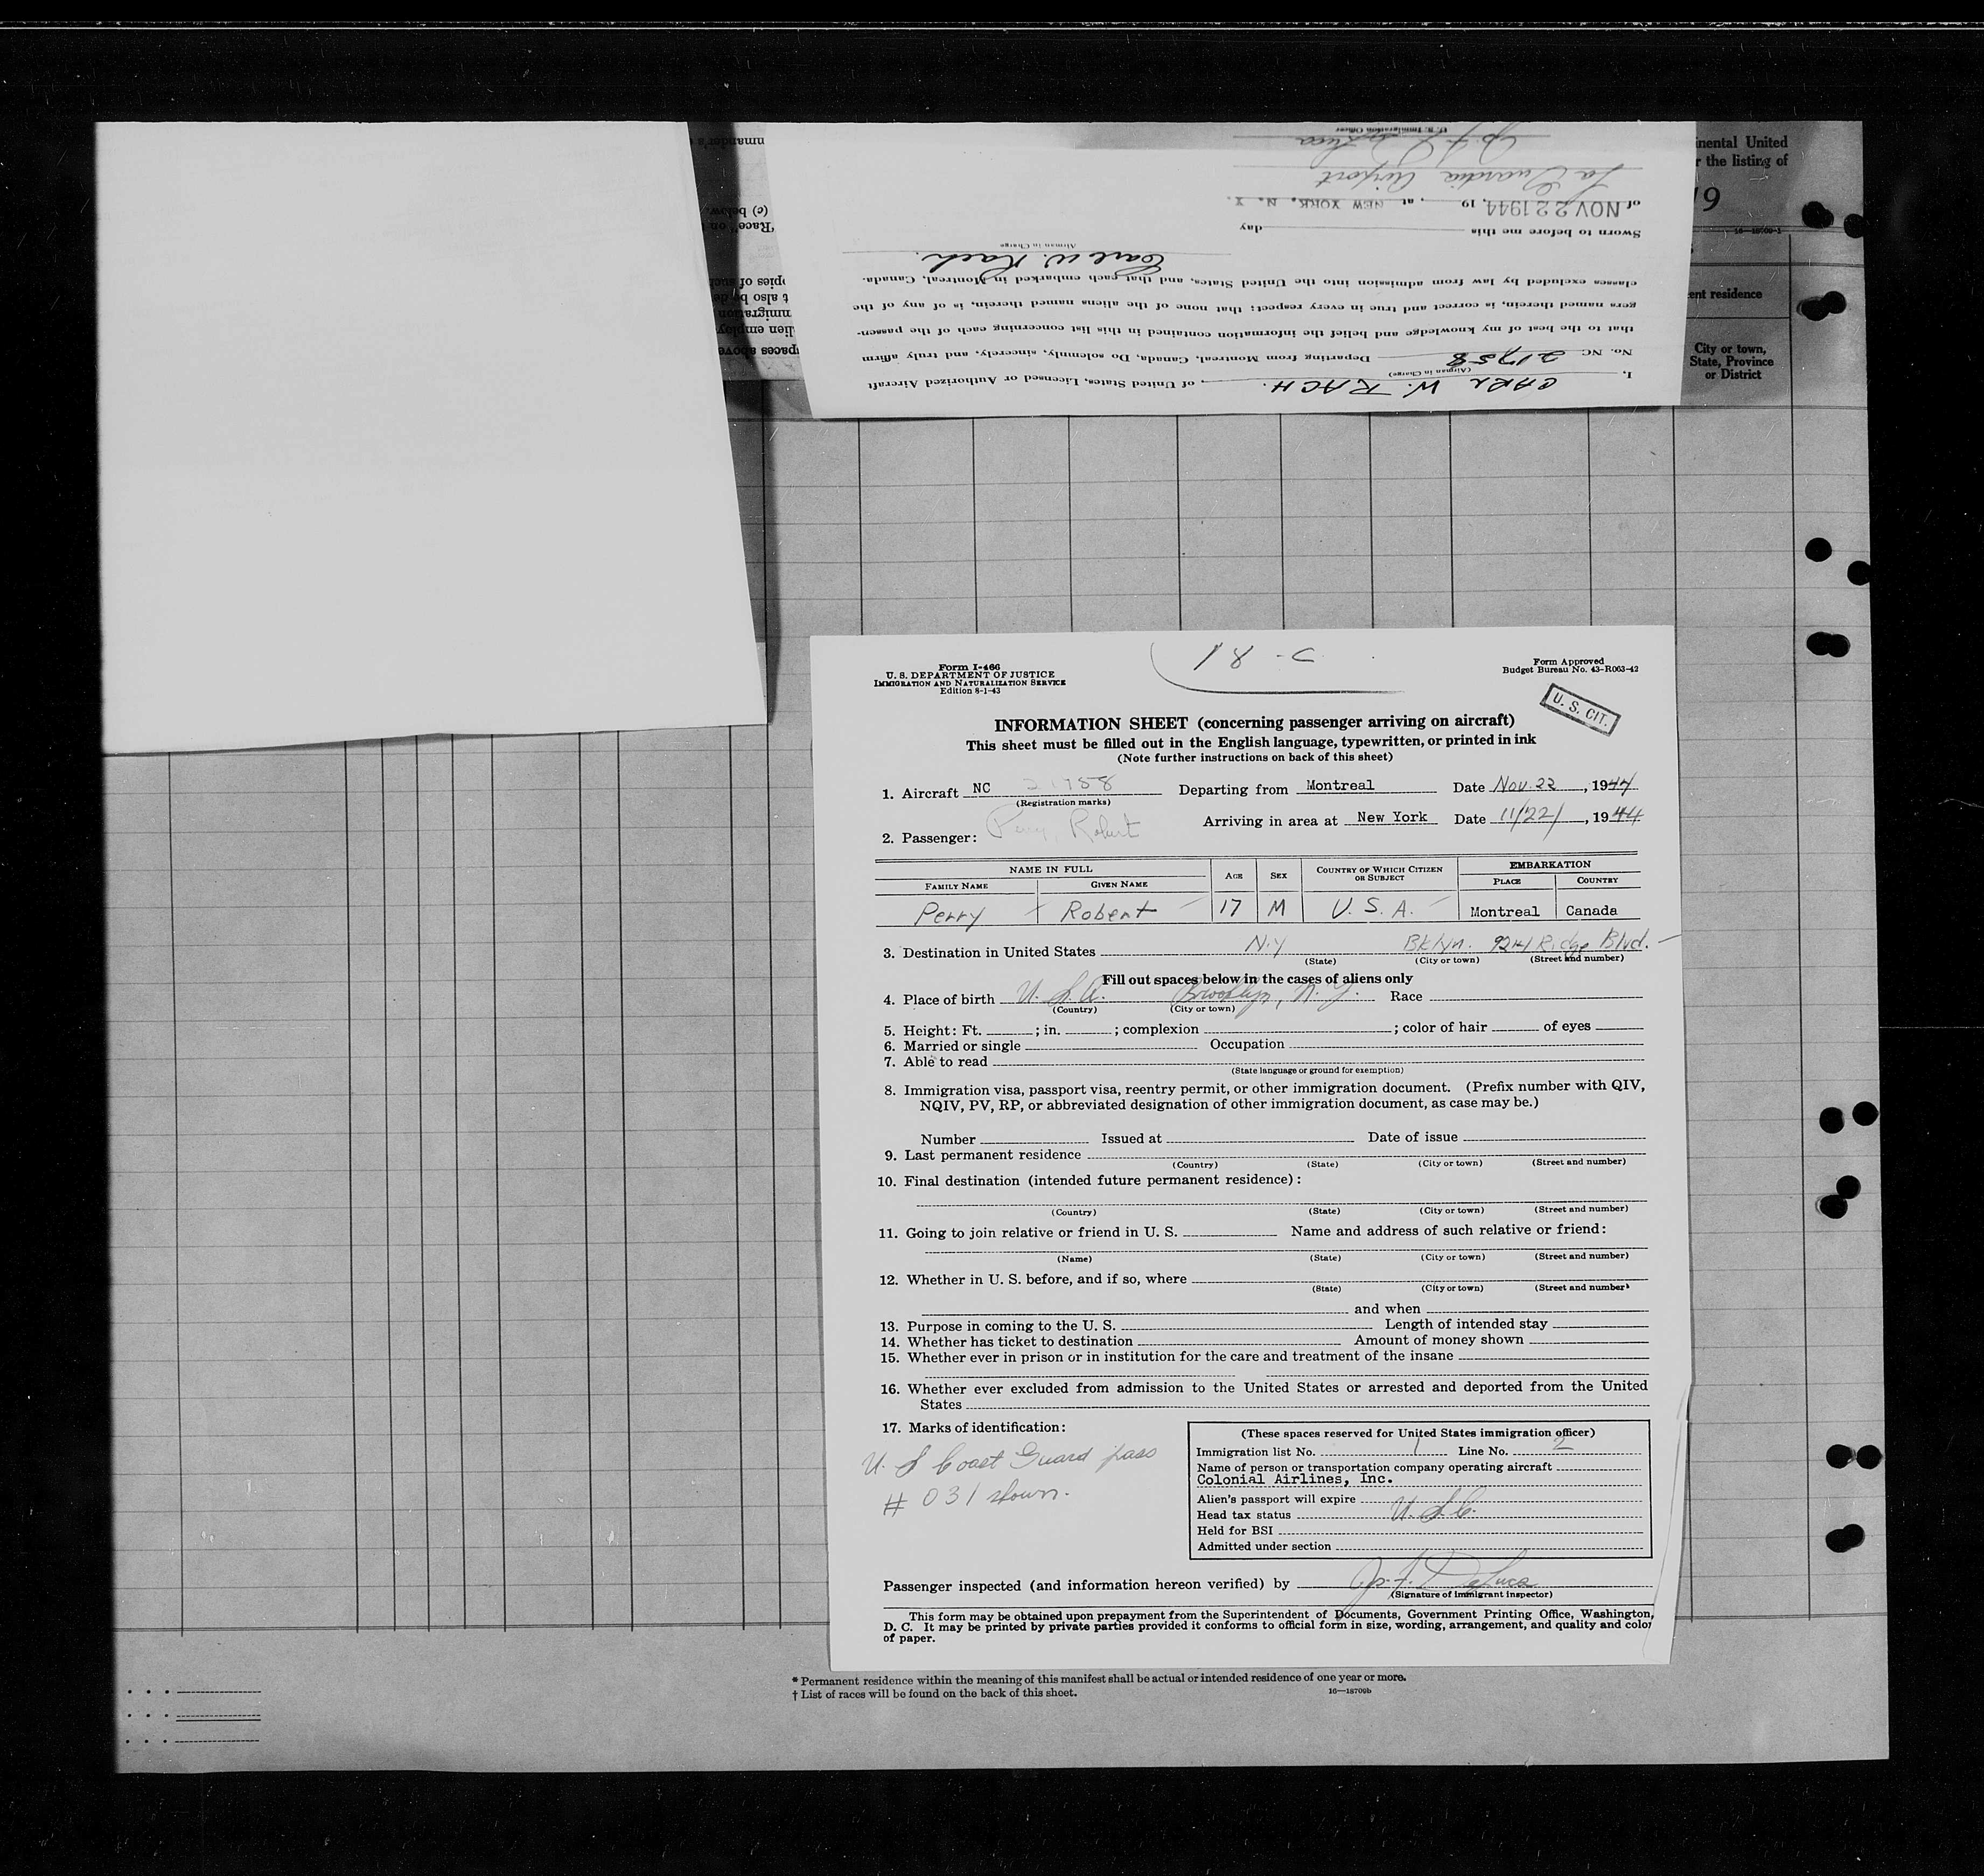 inental United
r the listing of
19
16—18709-1
ent residence
City or town,
State, Province
or District
nmander's
(c) below.
"Race" on
opies of such
t also be de
mmigration
lien employ
spaces above
I, CARL W. RACH, of United States, Licensed or Authorized Aircraft
(Airman in Charge)
No. NC 21758 Departing from Montreal, Canada, Do solemnly, sincerely, and truly affirm
that to the best of my knowledge and belief the information contained in this list concerning each of the passen-
gers named therein, is correct and true in every respect; that none of the aliens named therein, is of any of the
classes excluded by law from admission into the United States, and that each embarked in Montreal, Canada.
Carl W. Rach.
Airman in Charge
Sworn to before me this day
of NOV 22 1944, 19 , at NEW YORK, N. Y.
La Guardia Airport
U. S. Immigration Officer
18-2
Form I-466
U. S. DEPARTMENT OF JUSTICE
IMMIGRATION AND NATURALIZATION SERVICE
Edition 8-1-43
Form Approved
Budget Bureau No. 43-R063-42
U. S. CIT.
INFORMATION SHEET (concerning passenger arriving on aircraft)
This sheet must be filled out in the English language, typewritten, or printed in ink
(Note further instructions on back of this sheet)
1. Aircraft NC 21758 Departing from Montreal Date Nov. 22, 1944
(Registration marks)
Arriving in area at New York Date 11/22/, 1944
2. Passenger: Perry, Robert
NAME IN FULL AGE SEX COUNTRY OF WHICH CITIZEN OR SUBJECT EMBARKATION
FAMILY NAME GIVEN NAME PLACE COUNTRY
Perry Robert 17 M U. S. A. Montreal Canada
3. Destination in United States N.Y Bklyn. 9241 Ridge Blvd.
(State) (City or town) (Street and number)
Fill out spaces below in the cases of aliens only
4. Place of birth U. S. A. Brooklyn, N. Y. Race
(Country) (City or town)
5. Height: Ft. ; in. ; complexion ; color of hair of eyes
6. Married or single Occupation
7. Able to read
(State language or ground for exemption)
8. Immigration visa, passport visa, reentry permit, or other immigration document. (Prefix number with QIV,
NQIV, PV, RP, or abbreviated designation of other immigration document, as case may be.)
Number Issued at Date of issue
9. Last permanent residence
(Country) (State) (City or town) (Street and number)
10. Final destination (intended future permanent residence):
(Country) (State) (City or town) (Street and number)
11. Going to join relative or friend in U. S. Name and address of such relative or friend:
(Name) (State) (City or town) (Street and number)
12. Whether in U. S. before, and if so, where
(State) (City or town) (Street and number)
and when
13. Purpose in coming to the U. S. Length of intended stay
14. Whether has ticket to destination Amount of money shown
15. Whether ever in prison or in institution for the care and treatment of the insane
16. Whether ever excluded from admission to the United States or arrested and deported from the United
States
17. Marks of identification:
U. S Coast Guard pass
# 031 shown.
(These spaces reserved for United States immigration officer)
Immigration list No. 1 Line No. 2
Name of person or transportation company operating aircraft
Colonial Airlines, Inc.
Alien's passport will expire
Head tax status U. S. C.
Held for BSI
Admitted under section
Passenger inspected (and information hereon verified) by Jos. F. DeLuca
(Signature of immigrant inspector)
This form may be obtained upon prepayment from the Superintendent of Documents, Government Printing Office, Washington,
D. C. It may be printed by private parties provided it conforms to official form in size, wording, arrangement, and quality and color
of paper.
* Permanent residence within the meaning of this manifest shall be actual or intended residence of one year or more.
† List of races will be found on the back of this sheet.
16—18709b